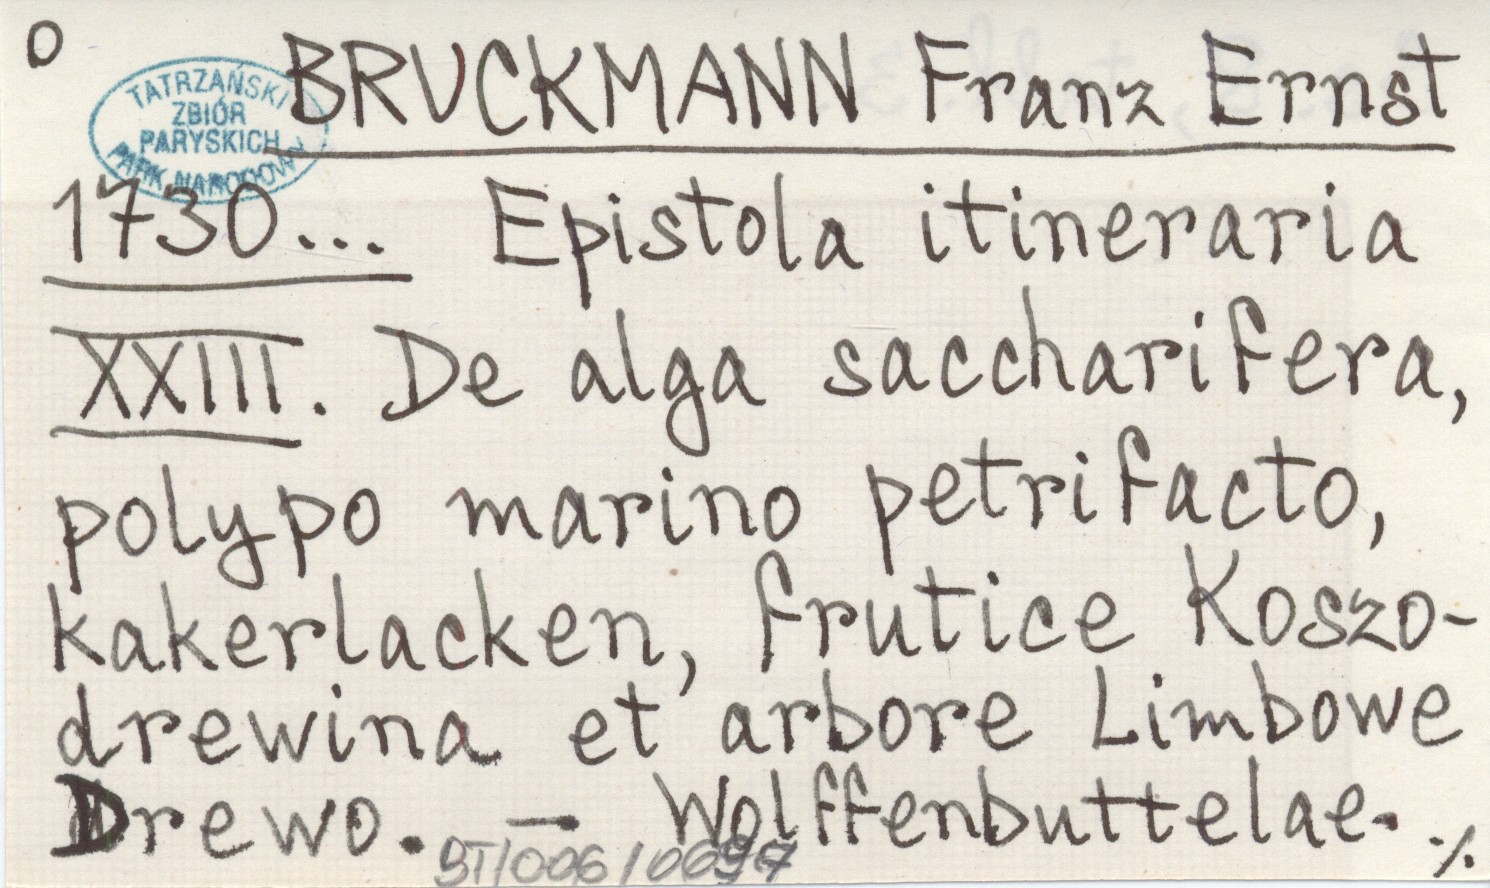 O
BRUCKMANN Franz Ernst
TATRZAŃSKI
ZBIÓR
PARYSKICH
PARK NARODOWY
1730... Epistola itineraria
XXIII. De alga saccharifera,
polypo marino petrifacto,
kakerlacken, frutice Koszo-
drewina et arbore Limbowe
Drewo. — Wolffenbuttelae. ./.
BT/006/